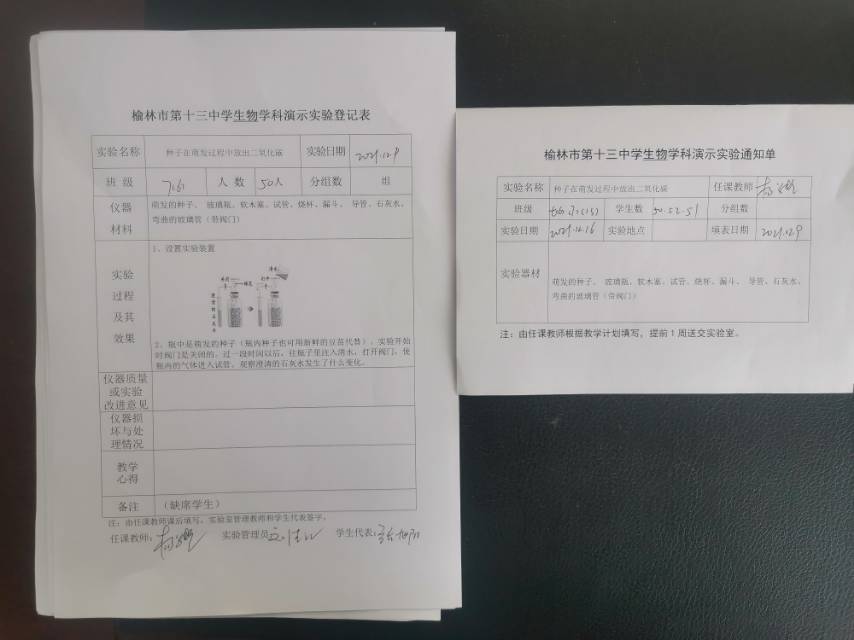 榆林市第十三中学生物学科演示实验登记表
实验名称 种子在萌发过程中放出二氧化碳 实验日期 2021.12.9
班 级 人 数 50人 分组数 组
仪器 材料 萌发的种子、 玻璃瓶、软木塞、试管、烧杯、漏斗、 导管、石灰水、
弯曲的玻璃管（带阀门）
实验 过程 及其 效果 1、设置实验装置
2、瓶中是萌发的种子（瓶内种子也可用新鲜的豆苗代替），实验开始
时阀门是关闭的。过一段时间以后，往瓶子里注入清水，打开阀门，使
瓶内的气体进入试管。观察澄清的石灰水发生了什么变化。
仪器质量
或实验
改进意见
仪器损
坏与处
理情况
教学
心得
备注 （缺席学生）
注：由任课教师课后填写，实验室管理教师和学生代表签字。
任课教师： 实验管理员 学生代表：
榆林市第十三中学生物学科演示实验通知单
实验名称 种子在萌发过程中放出二氧化碳 任课教师
班级 学生数 50.52.51 分组数
实验日期 2021.12.16 实验地点 填表日期 2021.12.9
实验器材 萌发的种子、 玻璃瓶、软木塞、试管、烧杯、漏斗、 导管、石灰水、
弯曲的玻璃管（带阀门）
注：由任课教师根据教学计划填写，提前 1 周送交实验室。